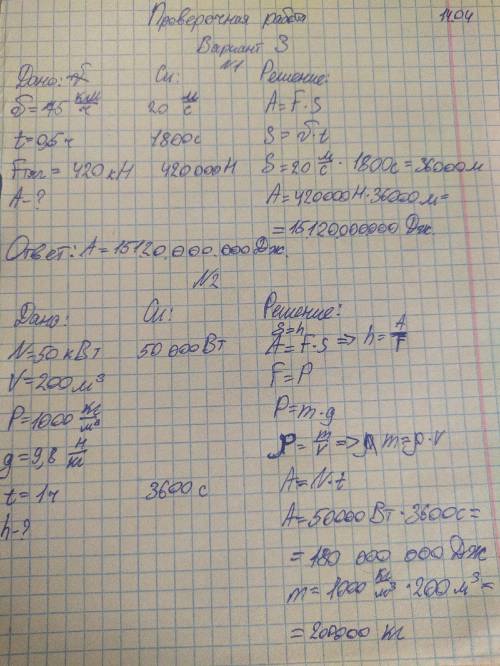 Проверочная работа 14.04
Вариант 3
N1
Дано: Си: Решение:
υ=75 км/ч 20 м/с A=F·S
t=0,5ч 1800с S=υ·t
Fтяг=420кН 420000Н S=20 м/с·1800с=36000м
A-? A=420000Н·36000м=
=15120000000 Дж.
Ответ: A=15120.000.000Дж.
N2
Дано: Си: Решение:
S=h
N=50кВт 50000Вт A=F·S=>h=A/F
V=200м³ F=P
ρ=1000 кг/м³ P=m·g
g=9,8 Н/кг ρ=m/V=> m=ρ·V
t=1ч 3600с A=N·t
h-? A=50000Вт·3600с=
=180 000 000 Дж
m=1000 кг/м³·200м³=
=200000 кг